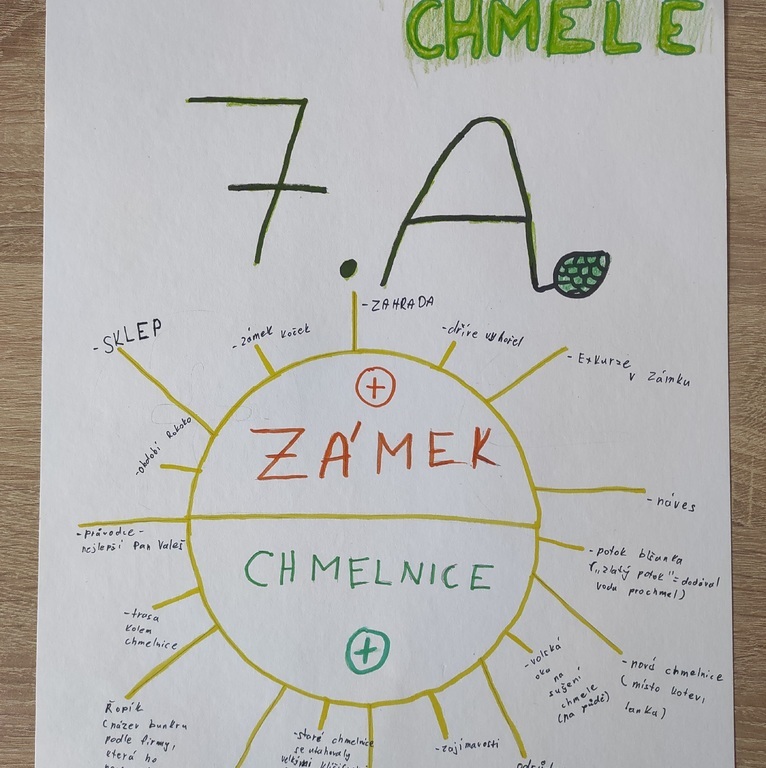 CHMELE
7.A
-ZAHRADA
-SKLEP
-zámek koček
-dříve vyhořel
-Exkurze
v zámku
-období Rokoko
ZÁMEK
-náves
-průvodce-
nejlepší Pan Valeš
CHMELNICE
-potok blšanka
("zlatý potok"=dodával
vodu prochmel)
-trasa
kolem
chmelnice
-volská
oka
na
sušení
chmele
(na půdě)
-nová chmelnice
(místo kotev,
lanka)
Řopík
(název bunkru
podle firmy,
která ho
-staré chmelnice
se utahovaly
velkými
-zajímavosti